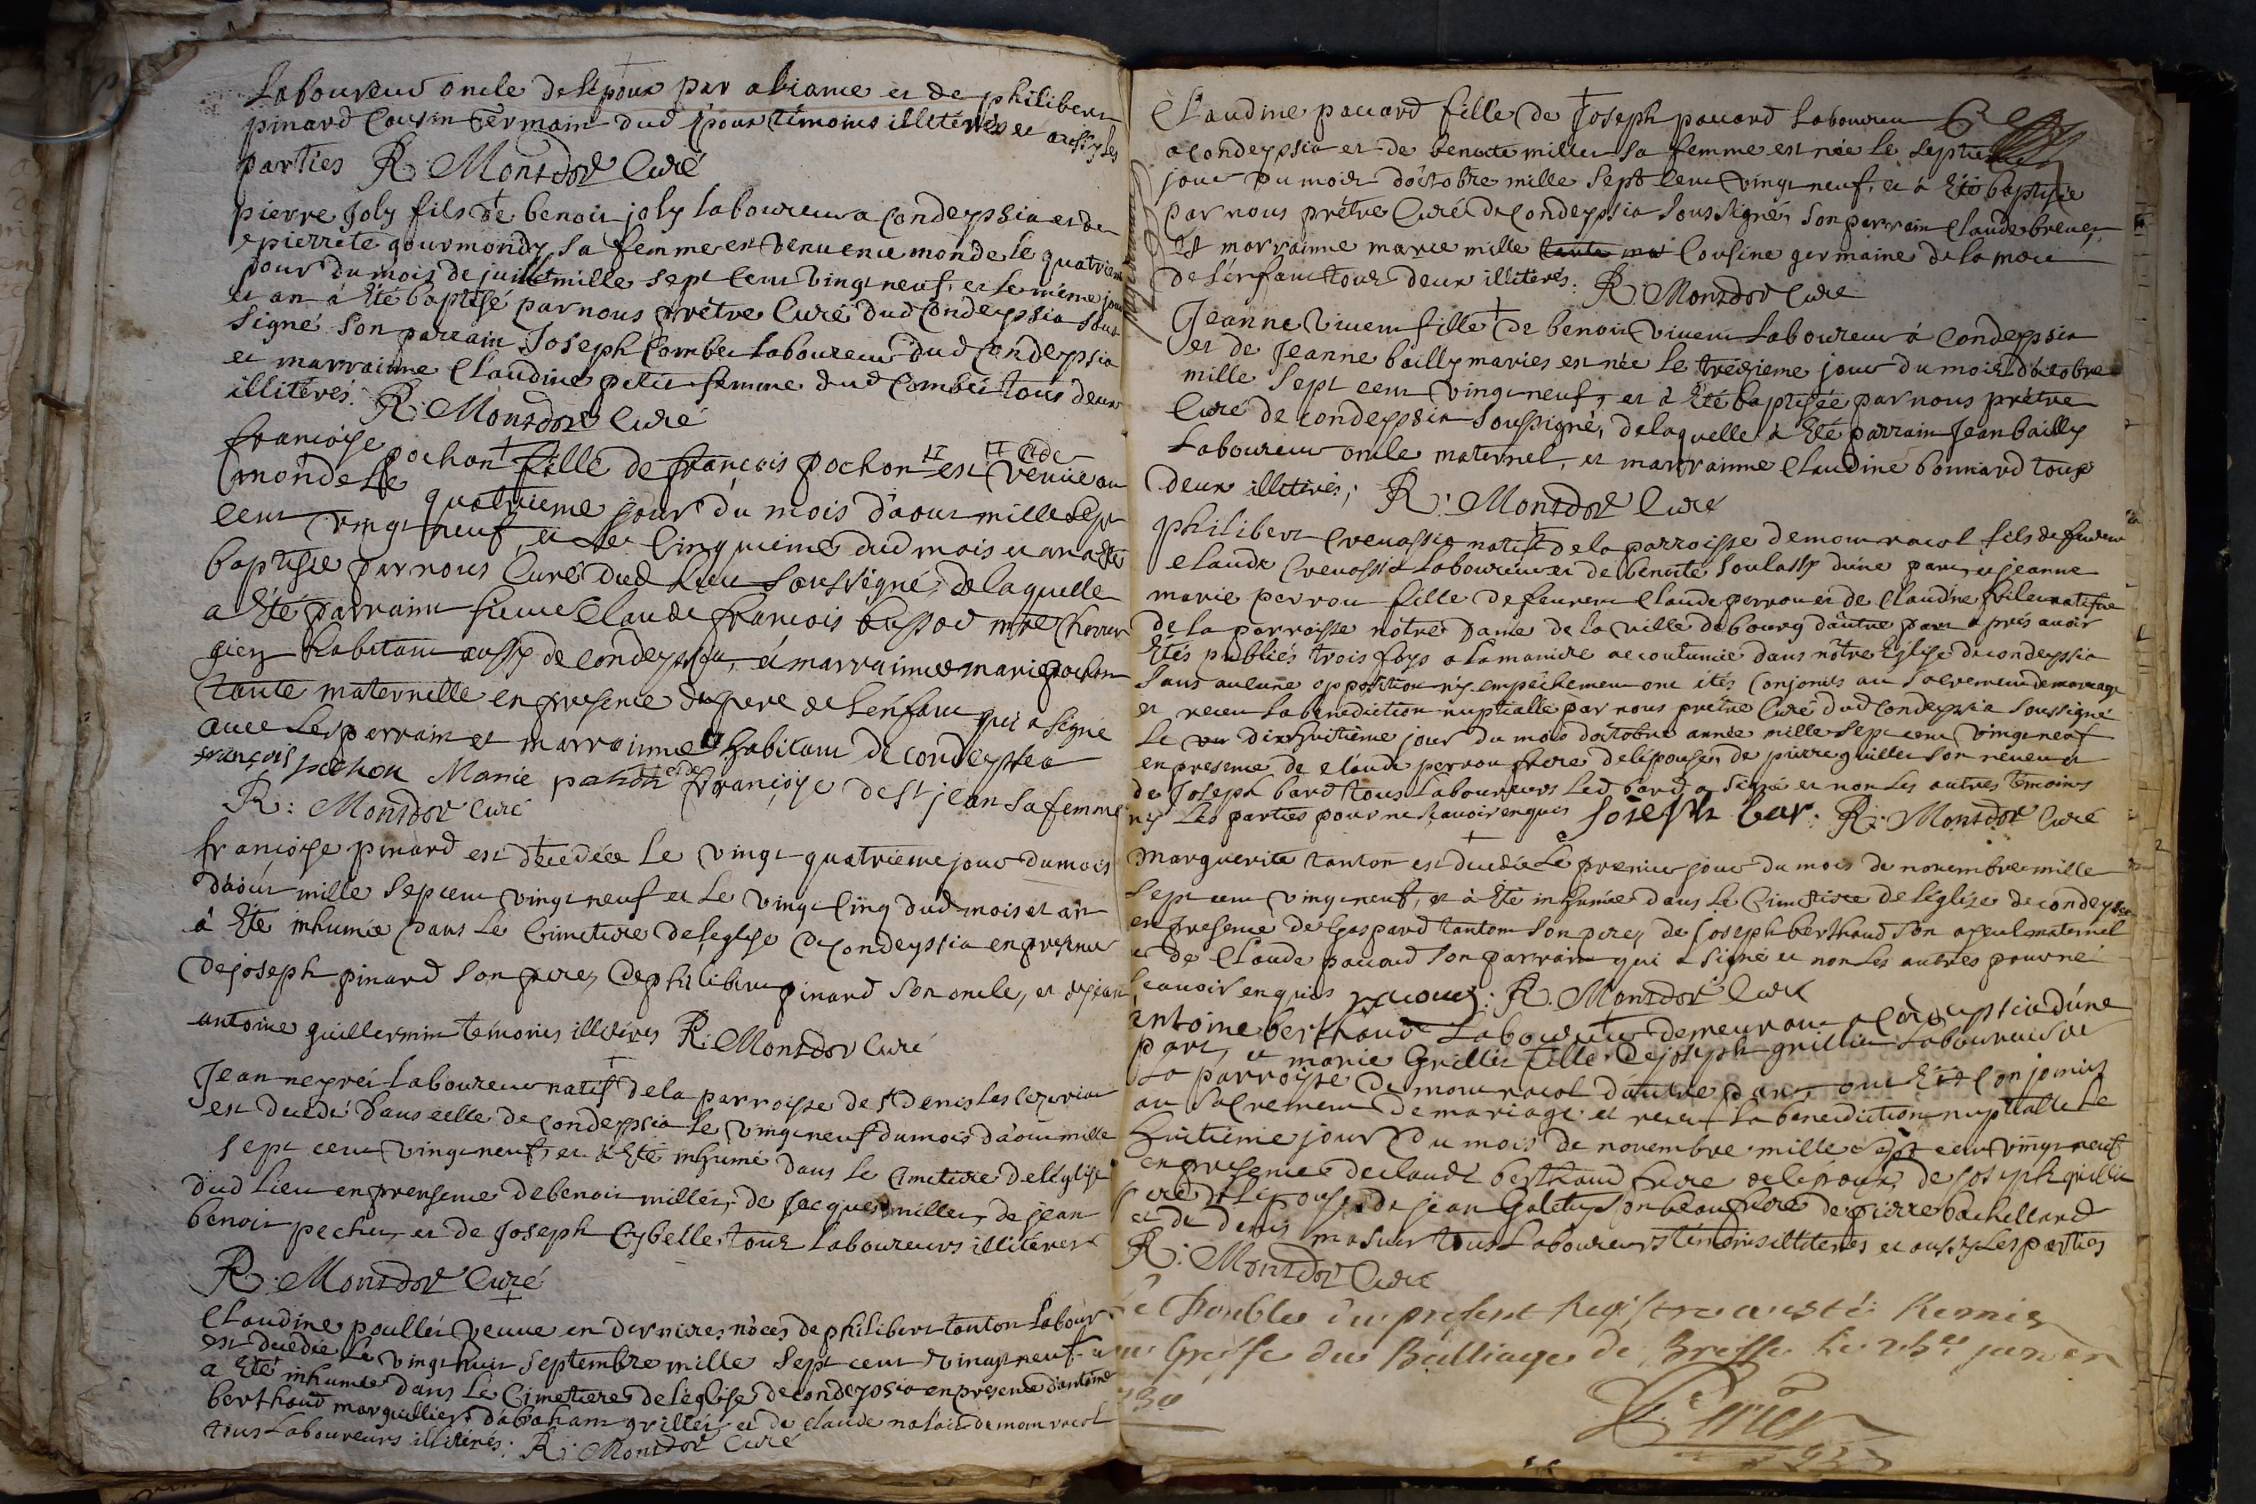 Laboureur oncle de lépoux par aliance et de philibert
pinard Cousin Germain dud époux témoins illiterés et aussy les
parties R: Monsdor Curé
pierre Joly fils de benoit joly laboureur a Condeyssia et de
pierrete gourmondy sa femme est venu au monde le quatrieme
jour du mois de juillet mille sept cent vingt neuf, et le même jour
et an à Eté baptisé par nous prêtre Curé dud Condeyssia sous
signé son parrain Joseph Combet laboureur dud Condeyssia
et marrainne Claudine petit femme dud Combet tous deux
illitérés. R: Monsdor Curé
françoise pochon fille de françois pochon et de est venüe au
monde le quatrieme jour du mois d'aout mille sept
cent vingt neuf, et le Cinquieme dud mois et an a eté
baptisée par nous Curé dud lieu soussigné, de laquelle
a Eté parrain sieur Claude françois bussod mtre Chirur
gien habitant aussy de Condeyssia, et marrainne marie pochon
tante maternelle en presence du pere de l'énfant qui a signé
avec les parrain et marrainne habitant de condeyssia
françois pochon Marie pochon et de françoise de st jean sa femme
R: Monsdor Curé
françoise pinard est decedée le vingt quatrieme jour du mois
d'aout mille sept cent vingt neuf et le vingt cinq dud mois et an
à Eté inhumée dans le Cimetiere de leglise de Condeyssia en presence
de joseph pinard son pere, de philibert pinard son oncle, et de jean
antoine guillermin témoins illiterés R: Monsdor Curé
Jean neyret laboureur natif de la parroisse de st denis
est decedé dans celle de condeyssia le vingt neuf du mois d'aout mille
sept cent vingt neuf, et à Eté inhumé dans le Cimetiere de léglise
dud lieu en presence de benoit millet, de jacques millet, de jean
benoit pechu, et de Joseph Cybelle, tous laboureurs illitérés
R: Monsdor Curé
Claudine poullet veuve en dernieres nôces de philibert tanton labour
est decedée le vingt huit septembre mille sept cent vingt neuf et
a Eté inhumée dans le Cimetiere de léglise de condeyssia en presence dantoine
berthaud marguillier, d'abraham grillet, et de claude de montracol
tous laboureurs illitérés: R: Monsdor Curé
Claudine pacard fille de Joseph pacard laboureur 6
a Condeyssia et de benoite millet sa femme est née le septieme
jour du mois d'octobre mille sept cent vingt neuf, et à Eté baptisée
par nous prêtre Curé de Condeyssia soussigné, son parrain Claude brevet
et marrainne marie mille Cousine germaine de la mere
de l'énfant tous deux illiterés: R: Monsdor Curé
Jeanne vivent fille de benoit vivent laboureur à Condeyssia
et de Jeanne bailly mariés est née le treizieme jour du mois d'octobre
mille sept cent vingt neuf, et à Eté baptisée par nous prêtre
Curé de condeyssia soussigné, de laquelle à Eté parrain Jean bailly
laboureur oncle maternel, et marrainne Claudine bonnard tous
deux illiterés; R: Monsdor Curé
philibert Crevassia natif de la parroisse de montracol fils de feu
claude Crevassia laboureur et de benoite soulassy d'une part, et jeanne
marie perrou fille de feu claude perrou et de claudine native
de la parroisse nôtre Dame de la ville de bourg d'autre part après avoir
Etés publiés trois foys a la maniere accoutumée dans nôtre Eglise de condeyssia
sans aucune opposition ny empêchement ont étés Conjoints au sacrement de mariage
et receu la benediction nuptialle par nous prêtre Curé dud Condeyssia soussigné
le dix huitieme jour du mois d'octobre année mille sept cent vingt neuf
en presence de claude perrou frere de lépouse, de pierre guillet son neveu et
de Joseph bard tous laboureurs led bard a signé et non les autres témoins
ny les parties pour ne sçavoir enquis Joseph bar: R: Monsdor Curé
marguerite tanton est decedée le premier jour du mois de novembre mille
sept cent vingt neuf, et à Eté inhumée dans le Cimetiere de léglize de condeyssia
en presence de gaspard tanton son pere, de joseph berthaud son ayeul maternel
et de Claude pacard son parrain qui a signé et non les autres pour ne
sçavoir enquis pacard: R: Monsdor Curé
antoine berthaud laboureur demeurant a Condeyssia d'une
part, et marie Grillet fille de joseph grillet laboureur de
la parroisse de montracol d'autre part, ont Eté Conjoints
au sacrement de mariage et receu la benediction nuptialle le
huitieme jour du mois de novembre mille sept cent vingt neuf
en presence de claude berthaud frere de lépoux, de joseph grillet
pere de lépouse, de jean Galet son beaufrere de pierre bachillard
et de denis masuir tous laboureurs témoins illiterés et aussy les parties
R: Monsdor Curé
Le double du present Registre a esté Remis
au Greffe du Balliage de Bresse le janvier
1730